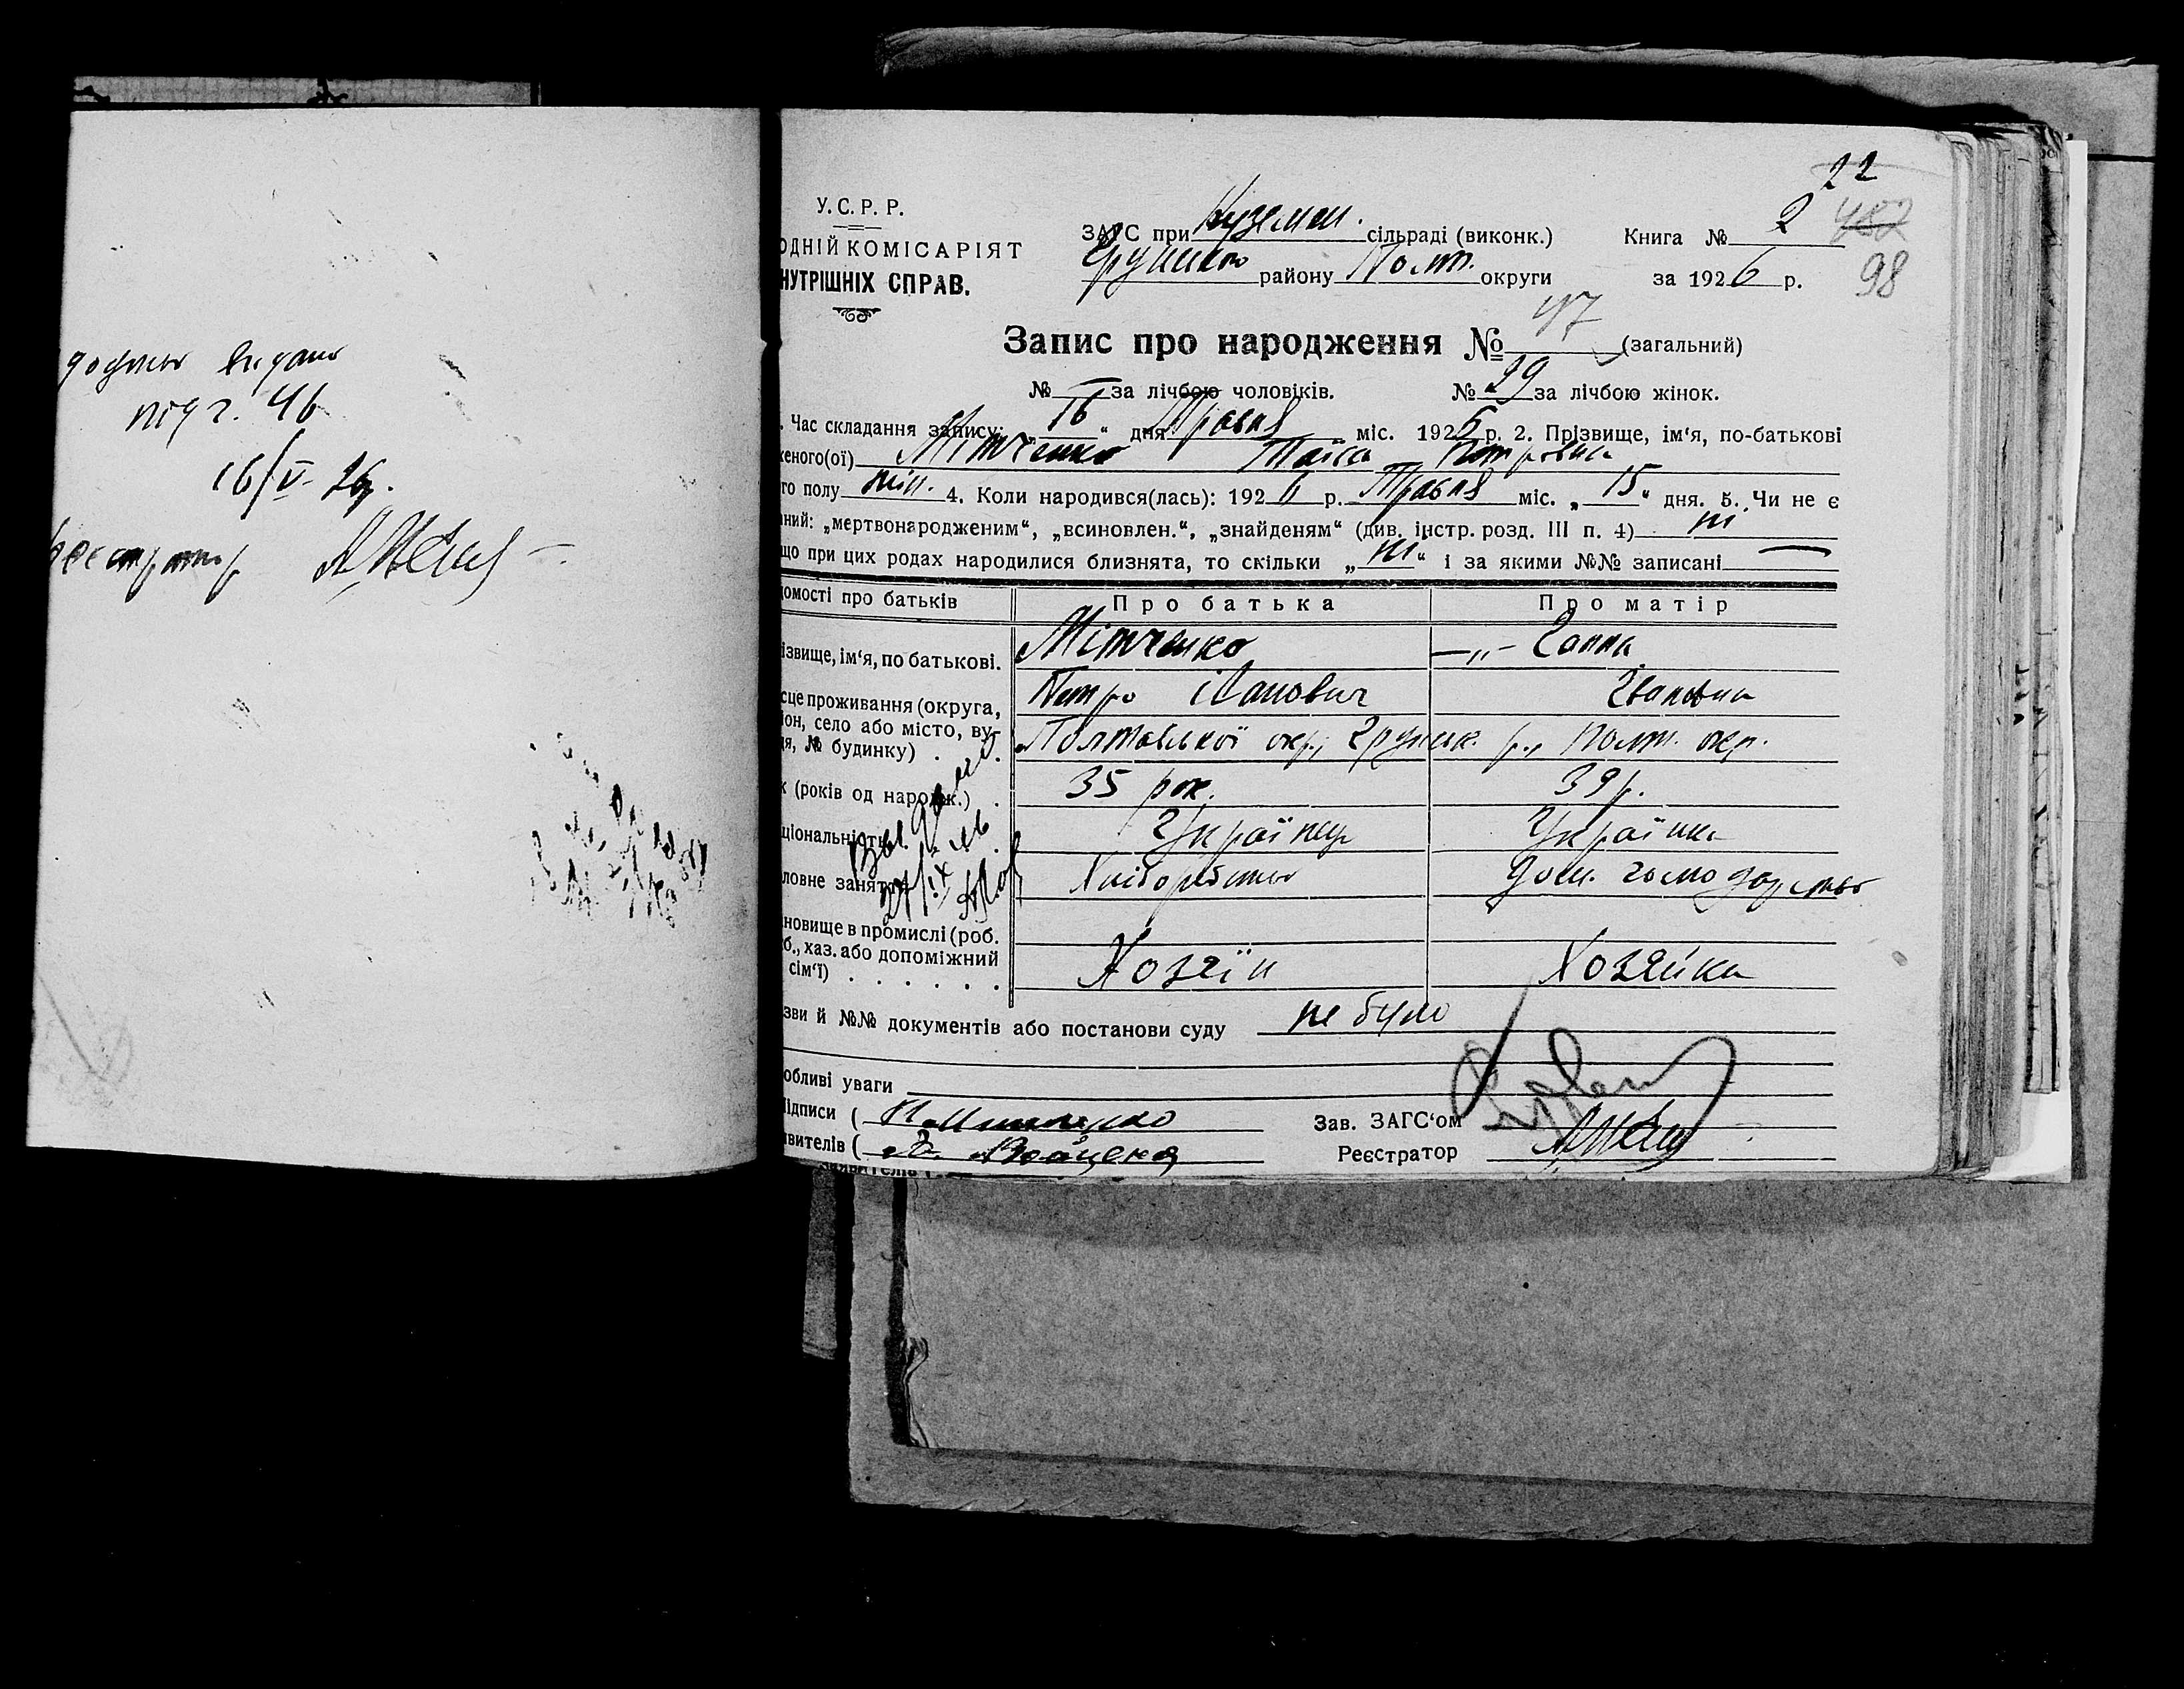 видано
під ч. 46
16/V-26р.
22
У.С.Р.Р.
ОДНІЙ КОМІСАРІЯТ
НУТРІШНІХ СПРАВ.
ЗАГС при Куземен. сільраді (виконк.)
району Полт. округи
Книга № 2
за 1926 р.
98
Запис про народження № 47 (загальний)
№ — за лічбою чоловіків. № 29 за лічбою жінок.
. Час складання запису: „ 16 “ дня Травня міс. 1926 р. 2. Прізвище, ім‘я, по-батькові
женого(ої) Мітченко Таїса Петровна
го полу жін. 4. Коли народився(лась): 1926 р. Травня міс. „ 15 “ дня. 5. Чи не є
аний: „мертвонародженим“, „всиновлен.“, „знайденям“ (див. інстр. розд. III п. 4) ні
що при цих родах народилися близнята, то скільки „ ні “ і за якими №№ записані —
домості про батьків Про батька Про матір
ізвище, ім‘я, по батькові. Мітченко —„— Ганна
Петро Іванович Івановна
сце проживання (округа,
йон, село або місто, ву-
ця, № будинку) . . Полтавської окр., Грунськ. р., Полт. окр.
к (років од народж.) . 35 рок. 39 р.
ціональність Українець Українка
ловне заняття Хліборобство Дом. господарство
ановище в промислі (роб.
б., хаз. або допоміжний
сім‘ї) . . . . . . Хозяїн Хозяйка
зви й №№ документів або постанови суду не було
обливі уваги
Підписи (
Зав. ЗАГС‘ом
явителів (
Реєстратор